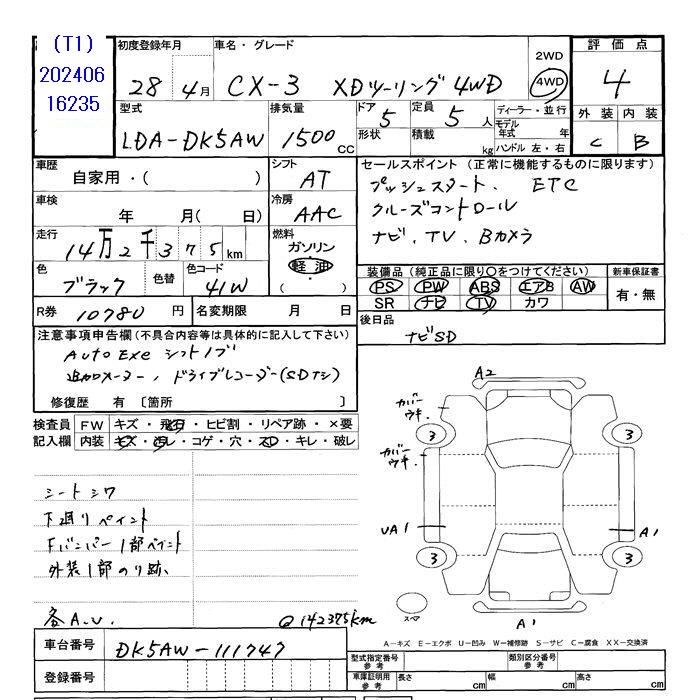 (T1)
202406
16235
初度登録年月
28 年 4月
車名・グレード
CX-3 XDツーリング 4WD
2WD
4WD
評価点
4
外装 内装
C B
型式
LDA-DK5AW
排気量
1500 CC
ドア 5
形状
定員 5 人
積載 kg
ディーラー・並行
モデル年式 年
ハンドル 左・右
車歴
自家用・( )
シフト
AT
車検
年 月( 日)
冷房
AAC
走行
14万2千375km
燃料
ガソリン
軽油
( )
色
ブラック
色替
色コード
41W
R券 10780 円
名変期限 月 日
セールスポイント (正常に機能するものに限ります)
プッシュスタート. ETC
クルーズコントロール
ナビ. TV. Bカメラ
装備品 (純正品に限り○をつけてください)
PS PW ABS エアB AW
SR ナビ TV カワ
新車保証書
有・無
後日品
ナビSD
注意事項申告欄 (不具合内容等は具体的に記入して下さい)
Auto Exe シフトノブ
追加メーター, ドライブレコーダー(SDナシ)
修復歴 有 [箇所 ]
検査員記入欄
FW キズ・飛石・ヒビ割・リペア跡・×要
内装 キズ・汚レ・コゲ・穴・スレ・キレ・破レ
シートシワ
下廻りペイント
Fバンパー1部ペイント
外装1部のり跡.
各A.U.
Q 142375km
A2
カバーウキ.
カバーウキ.
3 3
UA1 A1
3 3
スペア
A1
A-キズ E-エクボ U-凹み W-補修跡 S-サビ C-腐食 XX-交換済
車台番号 DK5AW-111747
登録番号
型式指定番号 参考
類別区分番号 参考
車庫証明用 参考
長さ cm
幅 cm
高さ cm